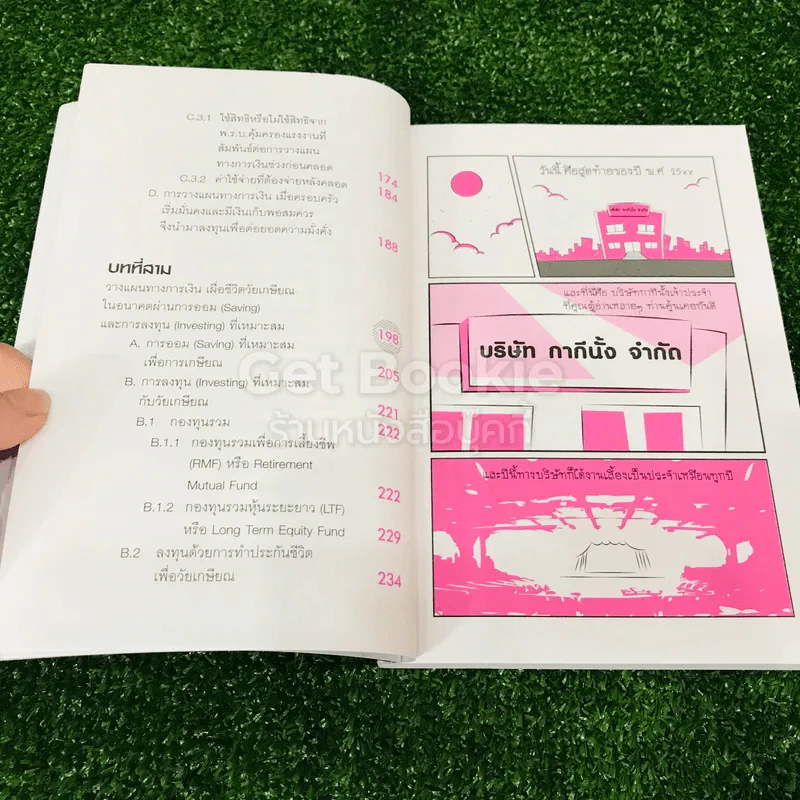 C.3.1 ใช้สิทธิหรือไม่ใช้สิทธิจาก
พ.ร.บ.คุ้มครองแรงงานที่
สัมพันธ์ต่อการวางแผน
ทางการเงินช่วงก่อนคลอด 174
C.3.2 ค่าใช้จ่ายที่ต้องจ่ายหลังคลอด 184
D. การวางแผนทางการเงิน เมื่อครอบครัว
เริ่มมั่นคงและมีเงินเก็บพอสมควร
จึงนำมาลงทุนเพื่อต่อยอดความมั่งคั่ง 188
บทที่สาม
วางแผนทางการเงิน เผื่อชีวิตวัยเกษียณ
ในอนาคตผ่านการออม (Saving)
และการลงทุน (Investing) ที่เหมาะสม 198
A. การออม (Saving) ที่เหมาะสม
เพื่อการเกษียณ 205
B. การลงทุน (Investing) ที่เหมาะสม
กับวัยเกษียณ 221
B.1 กองทุนรวม 222
B.1.1 กองทุนรวมเพื่อการเลี้ยงชีพ
(RMF) หรือ Retirement
Mutual Fund 222
B.1.2 กองทุนรวมหุ้นระยะยาว (LTF)
หรือ Long Term Equity Fund 229
B.2 ลงทุนด้วยการทำประกันชีวิต
เพื่อวัยเกษียณ 234
วันนี้ คือสุดท้ายของปี พ.ศ 25xx
บริษัท กากีนั้ง จำกัด
และที่นี่คือ บริษัทกากีนั้งเจ้าประจำ
ที่คุณผู้อ่านหลายๆ ท่านคุ้นเคยกันดี
บริษัท กากีนั้ง จำกัด
และปีนี้ทางบริษัทก็ได้งานเลี้ยงเป็นประจำเหมือนทุกปี
Get Bookie
ร้านหนังสือบุ๊คกี้